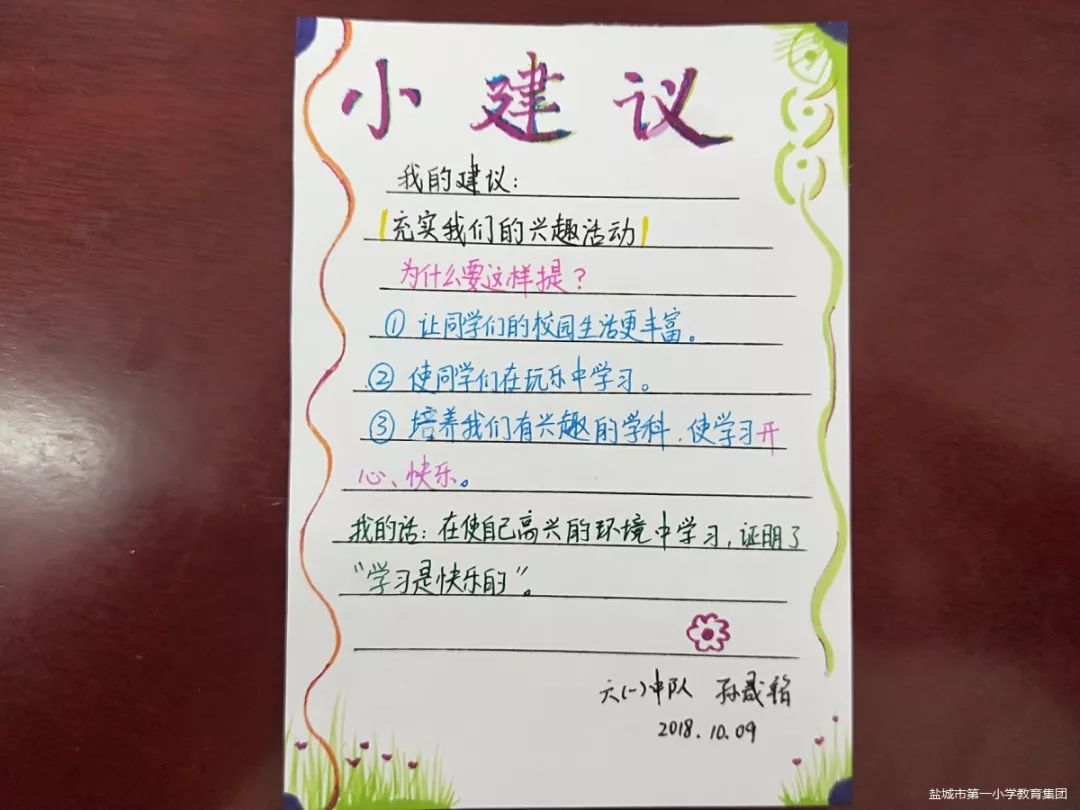 小建议
我的建议：
充实我们的兴趣活动
为什么要这样提？
① 让同学们的校园生活更丰富。
② 使同学们在玩乐中学习。
③ 培养我们有兴趣的学科，使学习开
心、快乐。
我的话：在使自己高兴的环境中学习，证明了
“学习是快乐的”。
六(一)中队 孙晟
2018.10.09
盐城市第一小学教育集团